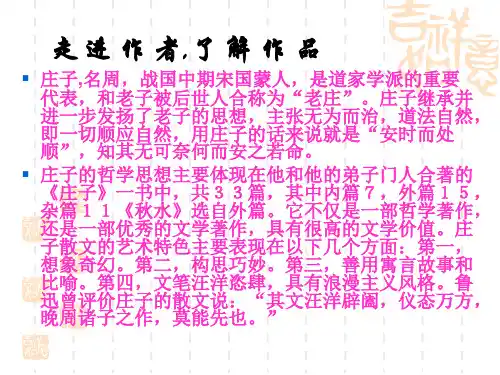 走进作者,了解作品
庄子,名周,战国中期宋国蒙人,是道家学派的重要
代表,和老子被后世人合称为“老庄”。庄子继承并
进一步发扬了老子的思想,主张无为而治,道法自然,
即一切顺应自然,用庄子的话来说就是“安时而处
顺”,知其无可奈何而安之若命。
庄子的哲学思想主要体现在他和他的弟子门人合著的
《庄子》一书中,共33篇,其中内篇7,外篇15,
杂篇11《秋水》选自外篇。它不仅是一部哲学著作,
还是一部优秀的文学著作,具有很高的文学价值。庄
子散文的艺术特色主要表现在以下几个方面:第一,
想象奇幻。第二,构思巧妙。第三,善用寓言故事和
比喻。第四,文笔汪洋恣肆,具有浪漫主义风格。鲁
迅曾评价庄子的散文说:“其文汪洋辟阖,仪态万方,
晚周诸子之作,莫能先也。”